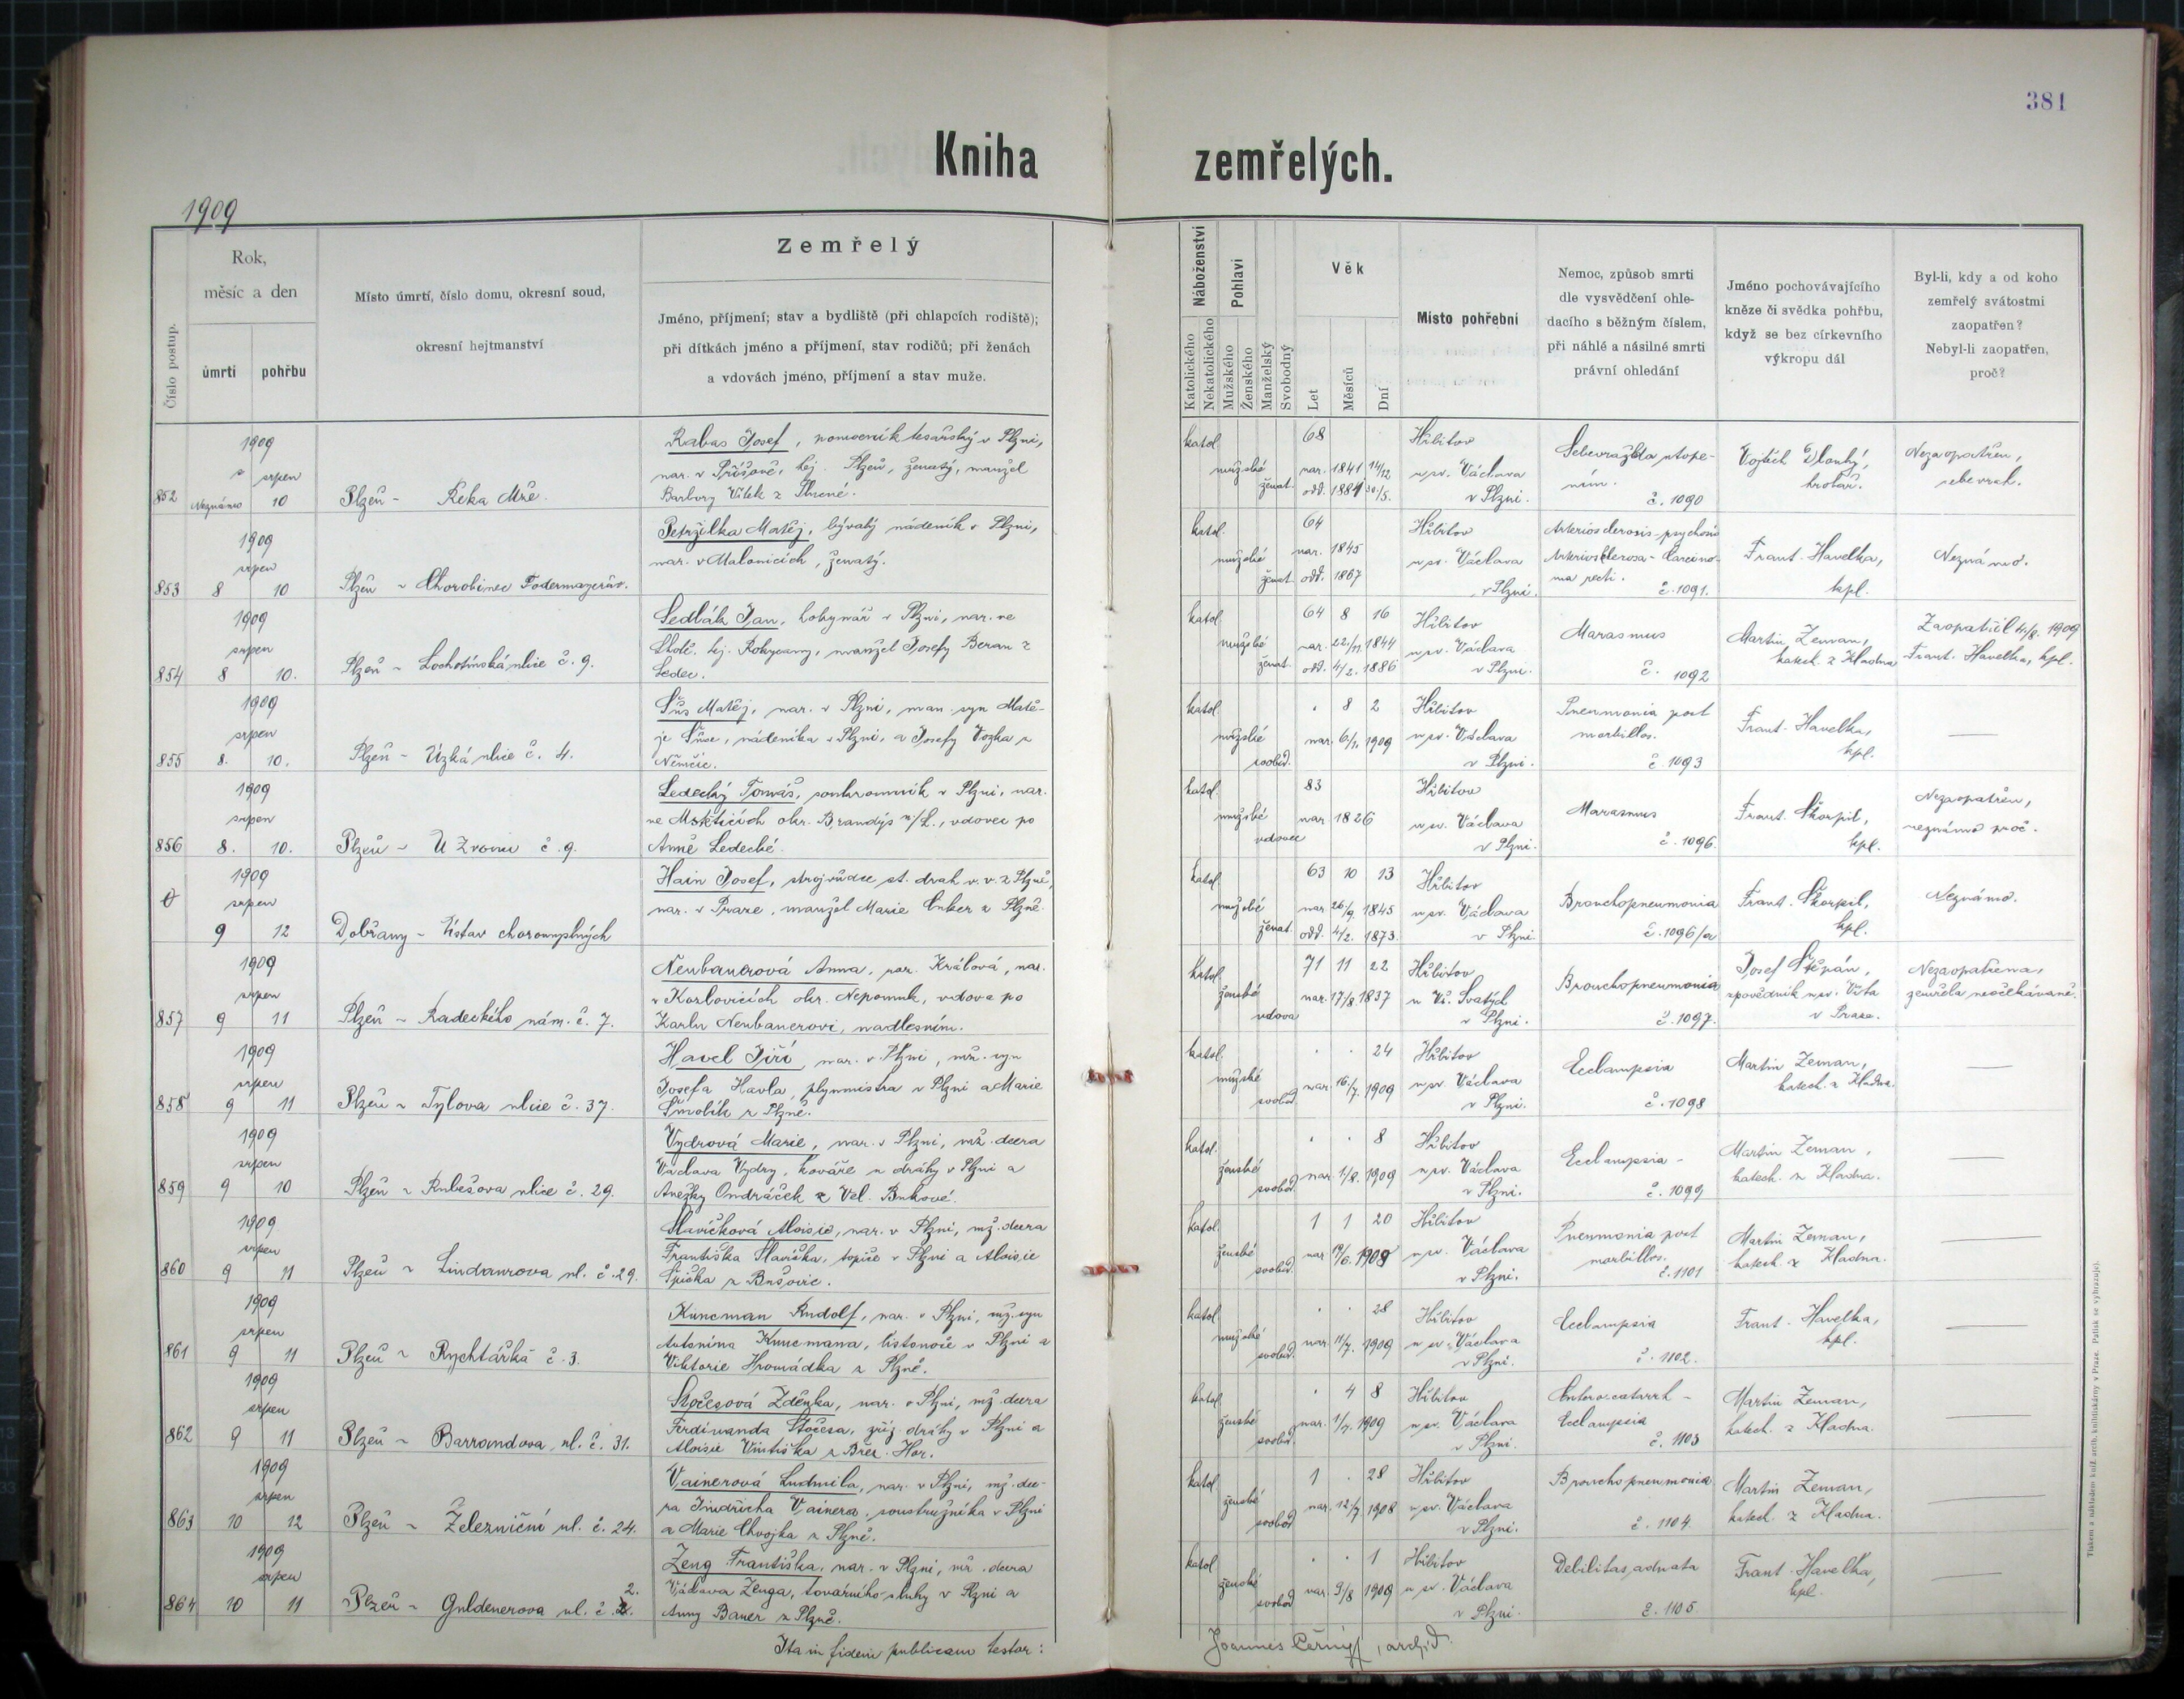 381
Kniha zemřelých.
1909
Číslo postup.
Rok,
měsíc a den
úmrtí
pohřbu
Místo úmrtí, číslo domu, okresní soud,
okresní hejtmanství
Zemřelý
Jméno, příjmení; stav a bydliště (při chlapcích rodiště);
při dítkách jméno a příjmení, stav rodičů; při ženách
a vdovách jméno, příjmení a stav muže.
Náboženství
Katolického
Nekatolického
Pohlaví
Mužského
Ženského
Manželský
Svobodný
Věk
Let
Měsíců
Dní
Místo pohřební
Nemoc, způsob smrti
dle vysvědčení ohle-
dacího s běžným číslem,
při náhlé a násilné smrti
právní ohledání
Jméno pochovávajícího
kněze či svědka pohřbu,
když se bez církevního
výkropu dál
Byl-li, kdy a od koho
zemřelý svátostmi
zaopatřen?
Nebyl-li zaopatřen,
proč?
1909
srpen
852 Neznámo 10 Plzeň - Řeka Mže.
Rabas Josef, pomocník tesařský v Plzni,
nar. v Příšově, hej. Plzeň, ženatý, manžel
Barbory Vítek z
katol. mužské ženat.
68
nar. 1841 14/12
odd. 1884 30/5.
Hřbitov
u sv. Václava
v Plzni.
Sebevražda utope-
ním.
č. 1090
Vojtěch Dlouhý,
hrobař.
Nezaopatřen,
sebevrah.
1909
srpen
853 8 10 Plzeň - Chorobinec Fodermayerův.
Petržilka Matěj, bývalý nádeník v Plzni,
nar. v Malonicích, ženatý.
katol. mužské ženat.
64
nar. 1845
odd. 1867
Hřbitov
u sv. Václava
v Plzni.
Arteriosclerosis - psychosis
Arteriosclerosa - Carcino-
ma recti.
č. 1091.
Frant. Havelka,
kpl.
Neznámo.
1909
srpen
854 8 10. Plzeň - Lochotínská ulice č. 9.
Sedlák Jan, hokynář v Plzni, nar. ve
hej. Rokycany, manžel Josefy Beran z
Ledec.
katol. mužské ženat.
64 8 16
nar. 22/11 1844
odd. 4/2. 1886
Hřbitov
u sv. Václava
v Plzni.
Marasmus
č. 1092
Martin Zeman,
katech. z Kladna
Zaopatřil 4/8. 1909
Frant. Havelka, kpl.
1909
srpen
855 8. 10. Plzeň - Úzká ulice č. 4.
Šůs Matěj, nar. v Plzni, man. syn Matě-
je Šůse, nádeníka v Plzni, a Josefy Vozka z
Němčic.
katol. mužské svobod.
. 8 2
nar. 6/1. 1909
Hřbitov
u sv. Václava
v Plzni.
Pneumonia post
morbillos.
č. 1093
Frant. Havelka,
kpl.
1909
srpen
856 8. 10. Plzeň - U Zvonu č. 9.
Ledecký Tomáš, soukromník v Plzni, nar.
ve Mstěticích okr. Brandýs n/L., vdovec po
Anně Ledecké.
katol. mužské vdovec
83
nar. 1826
Hřbitov
u sv. Václava
v Plzni.
Marasmus
č. 1096.
Frant. Škorpil,
kpl.
Nezaopatřen,
neznámo proč.
1909
srpen
9 12 Dobřany - Ústav choromyslných
Hain Josef, strojvůdce st. drah v. v. z Plzně,
nar. v Praze, manžel Marie Cuker z Plzně.
katol. mužské ženat.
63 10 13
nar. 26/9. 1845
odd. 4/2. 1873.
Hřbitov
u sv. Václava
v Plzni.
Bronchopneumonia
č. 1096/a
Frant. Škorpil,
kpl.
Neznámo.
1909
srpen
857 9 11 Plzeň - Radeckého nám. č. 7.
Neubauerová Anna, roz. Králová, nar.
v Kozlovicích okr. Nepomuk, vdova po
Karlu Neubauerovi, nadlesním.
katol. ženské vdova
71 11 22
nar. 17/8. 1837
Hřbitov
u Vš. Svatých
v Plzni.
Bronchopneumonia
č. 1097.
Josef Štěpán,
zpovědník u sv. Víta
v Praze.
Nezaopatřena,
zemřela neočekávaně.
1909
srpen
858 9 11 Plzeň - Tylova ulice č. 37.
Havel Jiří, nar. v Plzni, mž. syn
Josefa Havla, plynmistra v Plzni a Marie
Smolík z Plzně.
katol. mužské svobod.
. . 24
nar. 16/7. 1909
Hřbitov
u sv. Václava
v Plzni.
Eclampsia
č. 1098
Martin Zeman,
katech. z Kladna.
1909
srpen
859 9 10 Plzeň - Rubešova ulice č. 29.
Vydrová Marie, nar. v Plzni, mž. dcera
Václava Vydry, kováře u dráhy v Plzni a
Anežky Ondráček z Vel. Bukové.
katol. ženské svobod.
. . 8
nar. 1/8. 1909
Hřbitov
u sv. Václava
v Plzni.
Eclampsia -
č. 1099
Martin Zeman,
katech. z Kladna.
1909
srpen
860 9 11 Plzeň - Lindaurova ul. č. 29.
Slavíčková Aloisie, nar. v Plzni, mž. dcera
Františka Slavíčka, topiče v Plzni a Aloisie
Špička z
katol. ženské svobod.
1 1 20
nar. 19/6. 1908
Hřbitov
u sv. Václava
v Plzni.
Pneumonia post
morbillos.
č. 1101
Martin Zeman,
katech. z Kladna.
1909
srpen
861 9 11 Plzeň - Rychtářká č. 3.
Kuncman Rudolf, nar. v Plzni, mž. syn
Antonína Kuncmana, listonoše v Plzni a
Viktorie Hromádka z Plzně.
katol. mužské svobod.
. . 28
nar. 11/7. 1909
Hřbitov
u sv. Václava
v Plzni.
Eclampsia
č. 1102.
Frant. Havelka,
kpl.
1909
srpen
862 9 11 Plzeň - Barrandova ul. č. 31.
Stočesová Zdeňka, nar. v Plzni, mž. dcera
Ferdinanda Stočesa, zříz. dráhy v Plzni a
Aloisie Vintiška z Břez. Hor.
katol. ženské svobod.
. 4 8
nar. 1/4. 1909
Hřbitov
u sv. Václava
v Plzni.
Enterocatarrh -
Eclampsia
č. 1103
Martin Zeman,
katech. z Kladna.
1909
srpen
863 10 12 Plzeň - Železniční ul. č. 24.
Vainerová Ludmila, nar. v Plzni, mž. dce-
ra Jindřicha Vainera, soustružníka v Plzni
a Marie Chvojka z Plzně.
katol. ženské svobod.
1 . 28
nar. 12/7. 1908
Hřbitov
u sv. Václava
v Plzni.
Bronchopneumonia
č. 1104.
Martin Zeman,
katech. z Kladna.
1909
srpen
864 10 11 Plzeň - Guldenerova ul. č. 2.
Zeng Františka, nar. v Plzni, mž. dcera
Václava Zenga, továrního sluhy v Plzni a
Anny Bauer z Plzně.
katol. ženské svobod.
. . 1
nar. 9/8 1909
Hřbitov
u sv. Václava
v Plzni.
Debilitas adnata
č. 1105.
Frant. Havelka,
kpl.
Ita in fidem publicam testor:
Joannes Černý, archid.
Tiskem a nákladem kníž. arcib. knihtiskárny v Praze. Patisk se vyhrazuje.